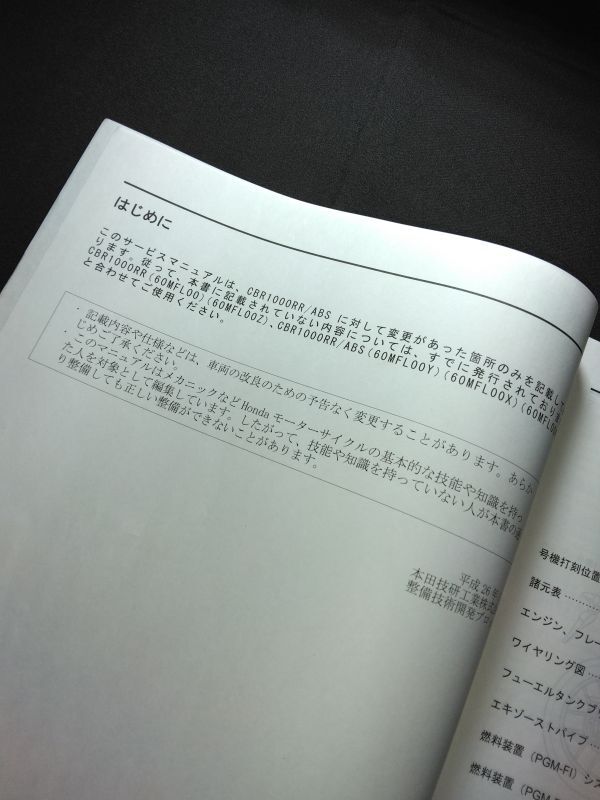 はじめに
このサービスマニュアルは、CBR1000RR/ABS に対して変更があった箇所のみを記載して
ります。従って、本書に記載されていない内容については、すでに発行されており
CBR1000RR(60MFL00)(60MFL00Z)、CBR1000RR/ABS(60MFL00Y)(60MFL00X)(60MFL00
と合わせてご使用ください。
・記載内容や仕様などは、車両の改良のための予告なく変更することがあります。あらか
じめご了承ください。
・このマニュアルはメカニックなどHonda モーターサイクルの基本的な技能や知識を持っ
た人を対象として編集しています。したがって、技能や知識を持っていない人が本書の
り整備しても正しい整備ができないことがあります。
平成26年
本田技研工業株式
整備技術開発ブロ
号機打刻位置
諸元表 ............
エンジン、フレー
ワイヤリング図 ....
フューエルタンクブ
エキゾーストパイプ ...
燃料装置 (PGM-FI) シス
燃料装置 (PGM-